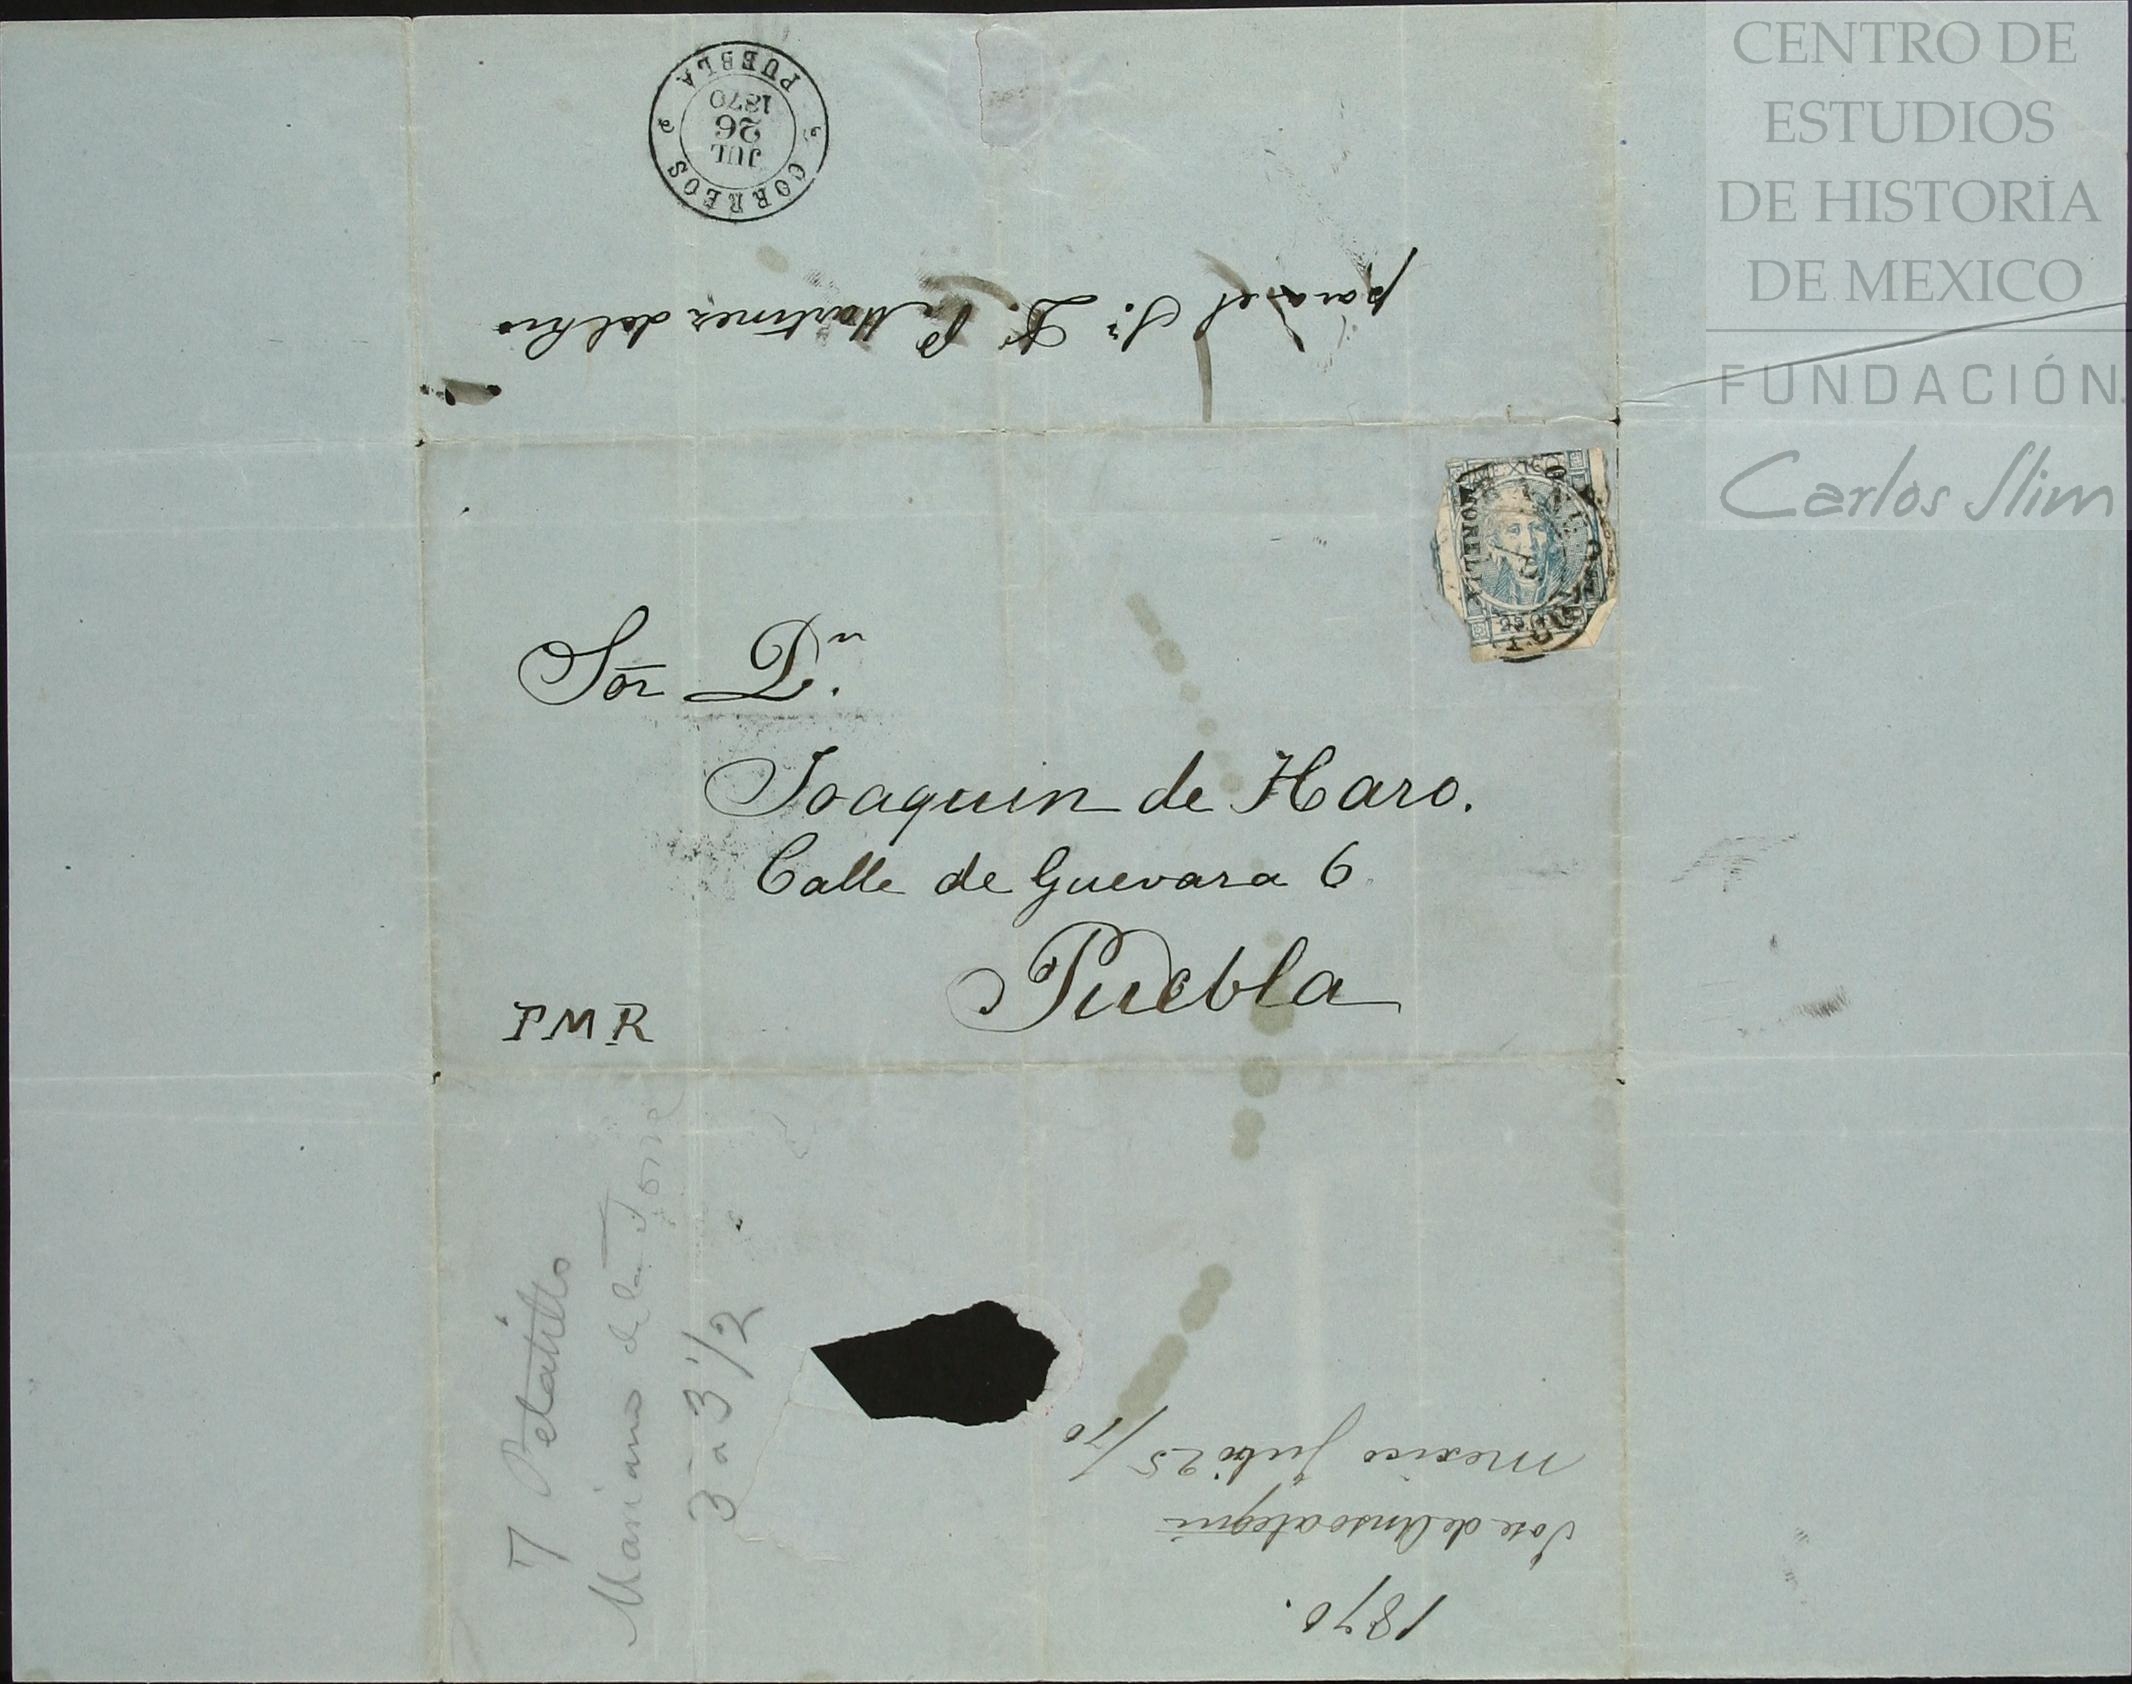 CENTRO DE
ESTUDIOS
DE HISTORIA
DE MEXICO
FUNDACIÓN
Carlos Slim
CORREOS
PUEBLA
JUL
26
1870
para el Sr. D. P. Martinez del Rio
MEXICO
25
Sor Dn.
Joaquin de Haro.
Calle de Guevara 6
Puebla
PMR
7 Petatillo
Mariano de la Torre
3 a 3 1/2
1870.
Jose de Ansoategui
Mexico Julio 25/70